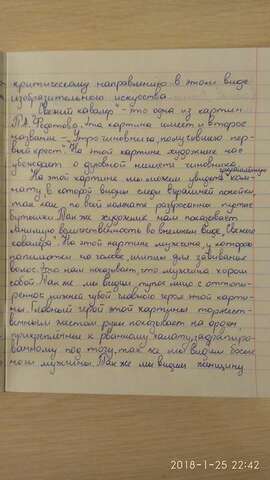 критическому направлению в этом виде
изобразительного искусства.
"Свежий кавалер" - это одна из картин
П.А. Федотова. Эта картина имеет и второе
название - "Утро чиновника, получившего пер-
вый крест". На этой картине художник нас
убеждает о духовной нищете чиновника.
На этой картине мы можем увидеть ком-
нату, в которой видим следы вчерашней попойки,
так как по всей комнате разбросаны пустые
бутылки. Также художник нам показывает
мнимую величественность во внешнем виде "Свежего
кавалера". На этой картине мужчина, у которого
на голове для завивания
волос. Это нам показывает, что мужчина хорош
собой. Также мы видим тупое лицо с оттопы-
ренной нижней губой главного героя этой карти-
ны. Главный герой этой картины торжест-
венным жестом руки показывает на орден,
прикреплённый к рваному халату, задрапиро-
ванному под тогу, так же мы видим босые
ноги мужчины. Также мы видим женщину
2018-1-25 22:42